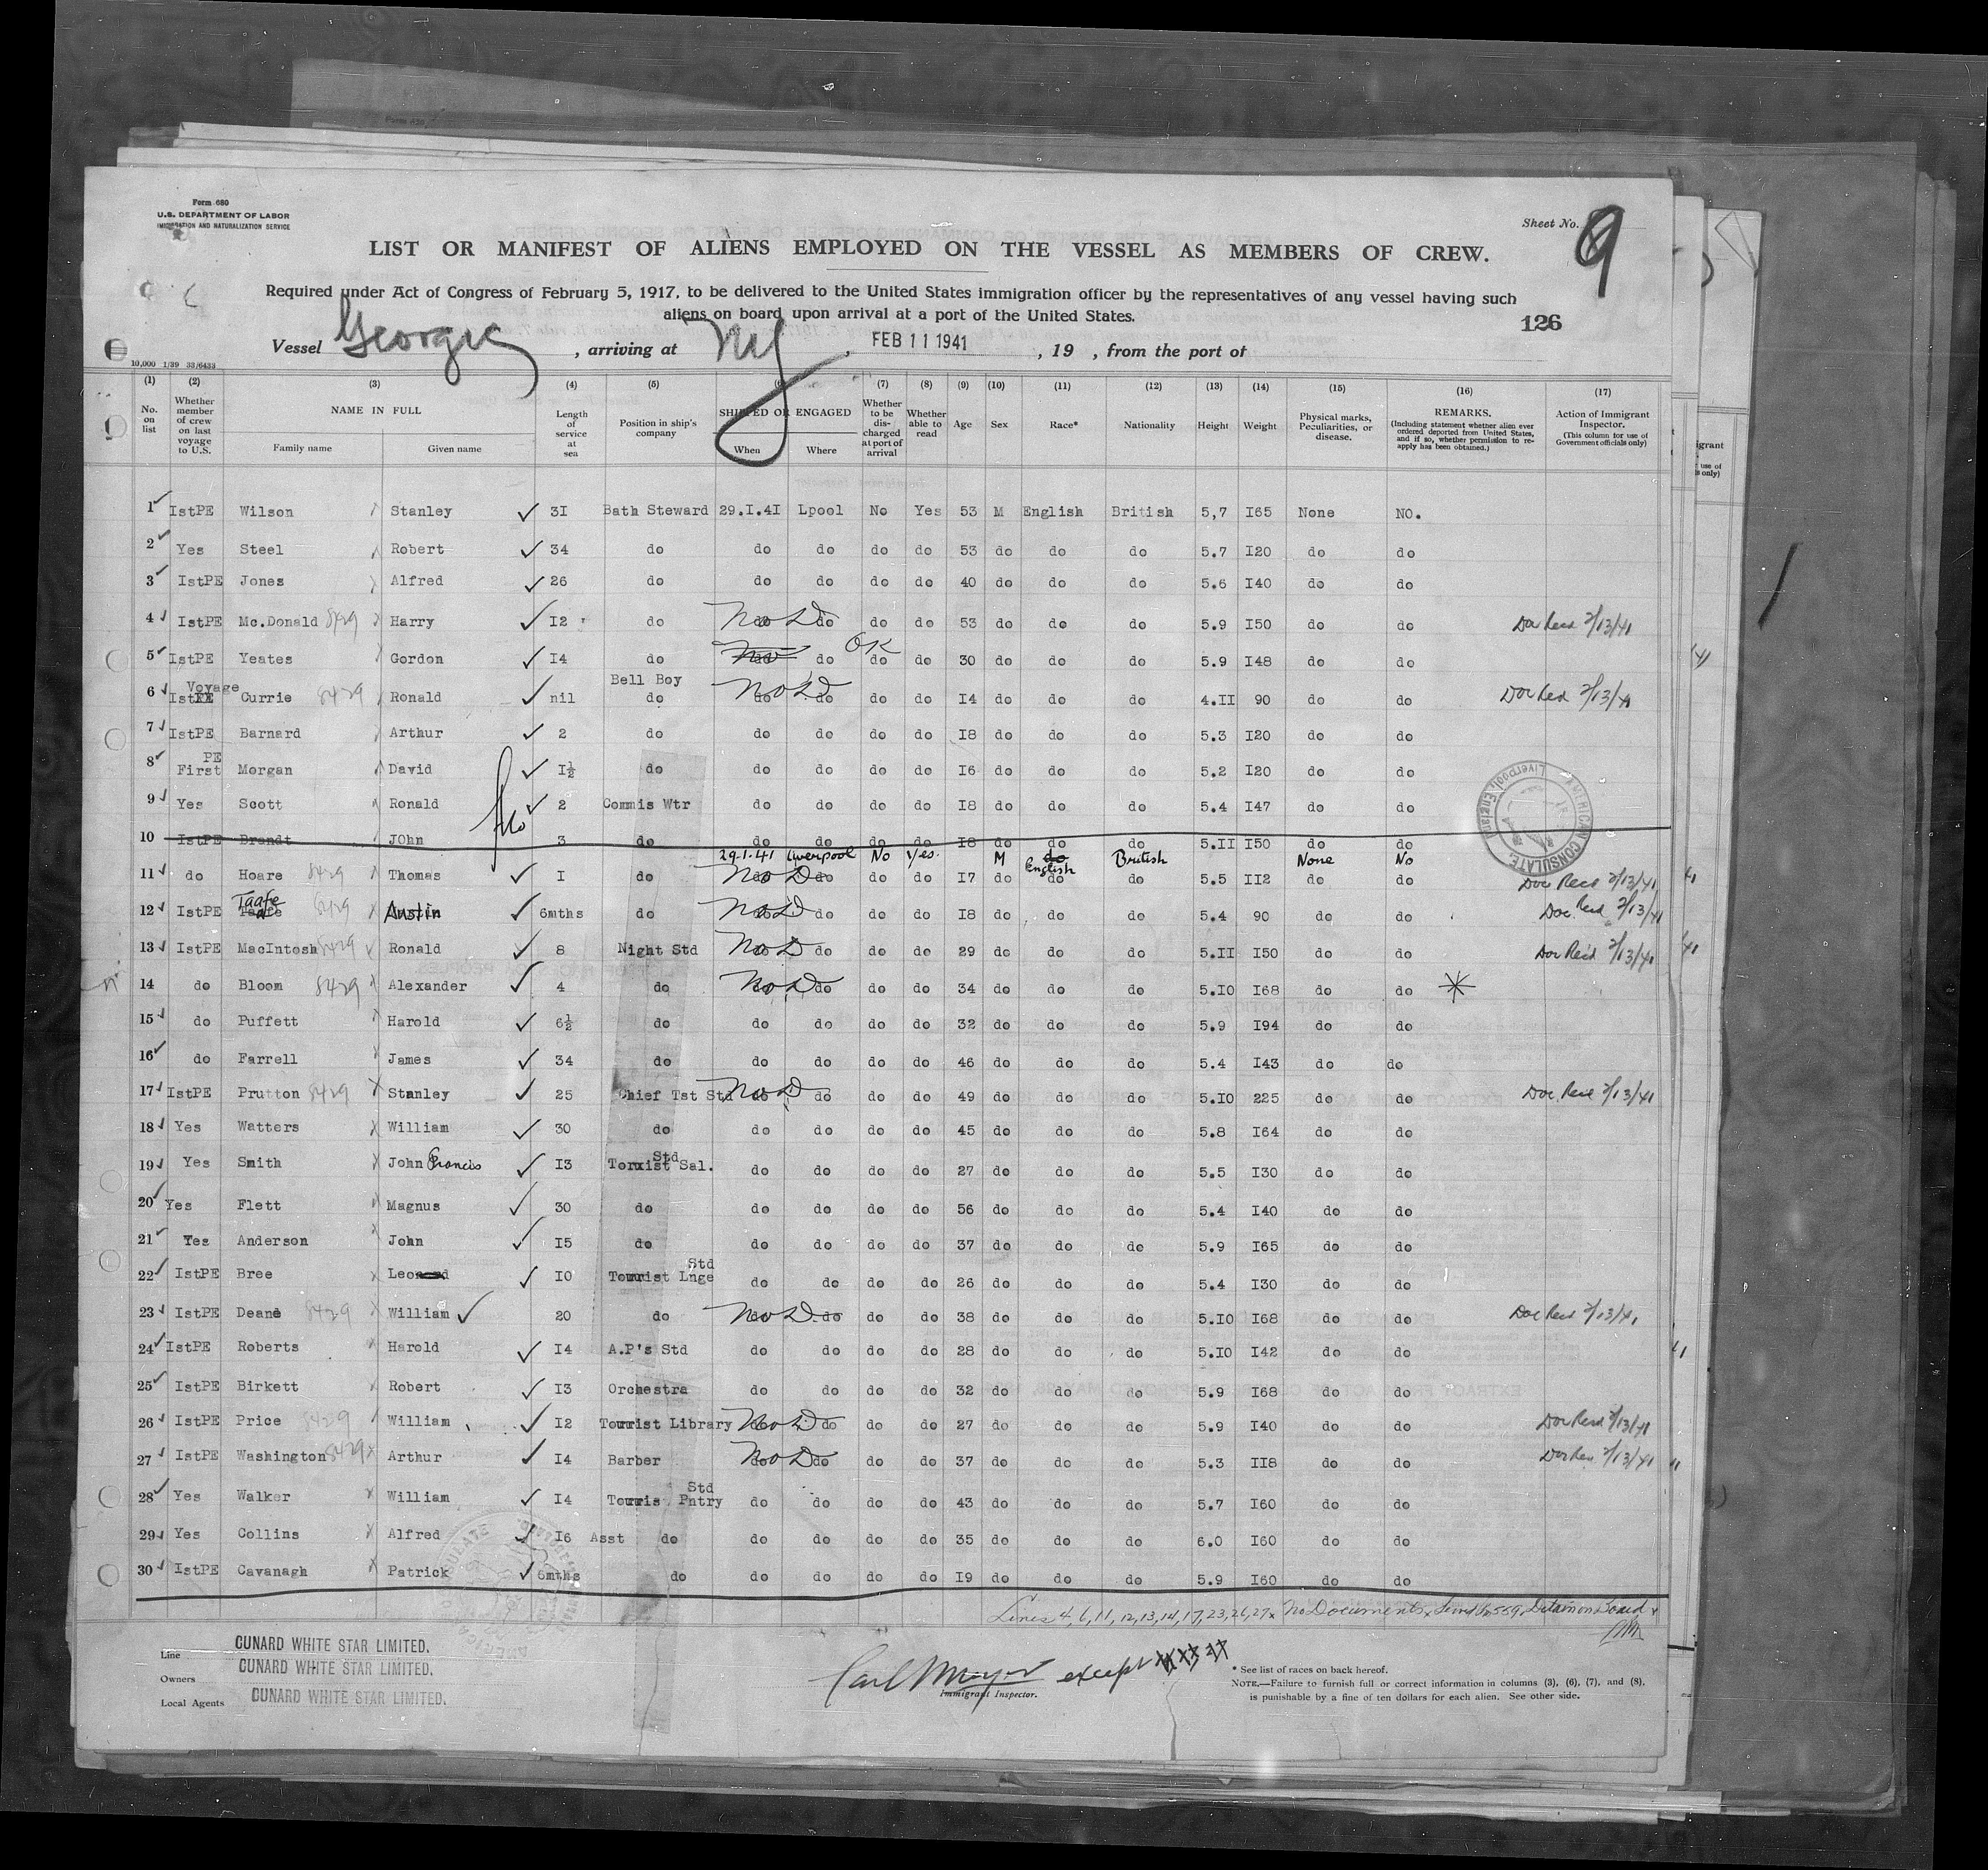 Form 680
U.S. DEPARTMENT OF LABOR
IMMIGRATION AND NATURALIZATION SERVICE
Sheet No. 9
LIST OR MANIFEST OF ALIENS EMPLOYED ON THE VESSEL AS MEMBERS OF CREW.
Required under Act of Congress of February 5, 1917, to be delivered to the United States immigration officer by the representatives of any vessel having such
aliens on board upon arrival at a port of the United States.
126
Vessel Georgic, arriving at NY, FEB 11 1941, 19 , from the port of
10,000 1/39 33/6433
(1) (2) (3) (4) (5) (6) (7) (8) (9) (10) (11) (12) (13) (14) (15) (16) (17)
No. on list Whether member of crew on last voyage to U.S. NAME IN FULL Family name Given name Length of service at sea Position in ship's company SHIPPED OR ENGAGED When Where Whether to be discharged at port of arrival Whether able to read Age Sex Race* Nationality Height Weight Physical marks, Peculiarities, or disease. REMARKS. (Including statement whether alien ever ordered deported from United States, and if so, whether permission to reapply has been obtained.) Action of Immigrant Inspector. (This column for use of Government officials only)
1 IstPE Wilson Stanley 3I Bath Steward 29.I.4I Lpool No Yes 53 M English British 5,7 I65 None NO.
2 Yes Steel Robert 34 do do do do do 53 do do do 5.7 I20 do do
3 IstPE Jones Alfred 26 do do do do do 40 do do do 5.6 I40 do do
4 IstPE Mc.Donald 8429 Harry I2 do No D do do do do 53 do do do 5.9 I50 do do Doc Recd 2/13/41
5 IstPE Yeates Gordon I4 do do do OK do do 30 do do do 5.9 I48 do do
6 Voyage Ist Currie 8429 Ronald nil Bell Boy do No D do do do do I4 do do do 4.II 90 do do Doc Recd 2/13/41
7 IstPE Barnard Arthur 2 do do do do do I8 do do do 5.3 I20 do do
8 PE First Morgan David I½ do do do do do I6 do do do 5.2 I20 do do
9 Yes Scott Ronald 2 Commis Wtr do do do do I8 do do do 5.4 I47 do do
10 IstPE Brandt JOhn 3 do do do do do I8 do do do 5.II I50 do do
29.1.41 Liverpool No Yes. M English British None No
11 do Hoare 8429 Thomas I do No D do do do do I7 do do do 5.5 II2 do do Doc Recd 2/13/41
12 IstPE Taafe 8429 Austin 6mths do No D do do do do I8 do do do 5.4 90 do do Doc. Recd 2/13/41
13 IstPE MacIntosh 8429 Ronald 8 Night Std No D do do do do 29 do do do 5.II I50 do do Doc Rec'd 2/13/41
14 do Bloom 8429 Alexander 4 do No D do do do do 34 do do do 5.I0 I68 do do *
15 do Puffett Harold 6½ do do do do do 32 do do do 5.9 I94 do do
16 do Farrell James 34 do do do do do 46 do do do 5.4 I43 do do
17 IstPE Prutton 8429 Stanley 25 Chief Tst Std No D do do do do 49 do do do 5.I0 225 do do Doc. Recd 2/13/41
18 Yes Watters William 30 do do do do do 45 do do do 5.8 I64 do do
19 Yes Smith John Francis I3 Tourist Sal. Std do do do do 27 do do do 5.5 I30 do do
20 Yes Flett Magnus 30 do do do do do 56 do do do 5.4 I40 do do
21 Yes Anderson John I5 do do do do do 37 do do do 5.9 I65 do do
22 IstPE Bree Leo I0 Tourist Lnge Std do do do do 26 do do do 5.4 I30 do do
23 IstPE Deane 8429 William 20 do No D do do do do 38 do do do 5.I0 I68 do do Doc Recd 2/13/41
24 IstPE Roberts Harold I4 A.P's Std do do do do 28 do do do 5.I0 I42 do do
25 IstPE Birkett Robert I3 Orchestra do do do do 32 do do do 5.9 I68 do do
26 IstPE Price 8429 William I2 Tourist Library No D do do do do 27 do do do 5.9 I40 do do Doc Recd 2/13/41
27 IstPE Washington 8429 Arthur I4 Barber No D do do do do 37 do do do 5.3 II8 do do Doc Rec 2/13/41
28 Yes Walker William I4 Touris Pntry Std do do do do 43 do do do 5.7 I60 do do
29 Yes Collins Alfred I6 Asst do do do do do 35 do do do 6.0 I60 do do
30 IstPE Cavanagh Patrick 6mths do do do do do I9 do do do 5.9 I60 do do
AMERICAN CONSULATE Liverpool, England
Lines 4, 6, 11, 12, 13, 14, 17, 23, 26, 27 No Documents Served 559 Detain on Board
Line CUNARD WHITE STAR LIMITED.
Owners CUNARD WHITE STAR LIMITED.
Local Agents CUNARD WHITE STAR LIMITED.
Carl Meyer except
Immigrant Inspector.
* See list of races on back hereof.
NOTE.—Failure to furnish full or correct information in columns (3), (6), (7), and (8),
is punishable by a fine of ten dollars for each alien. See other side.